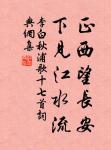 正西望長安
下見江水流
李白秋浦歌十七首詞
典網集